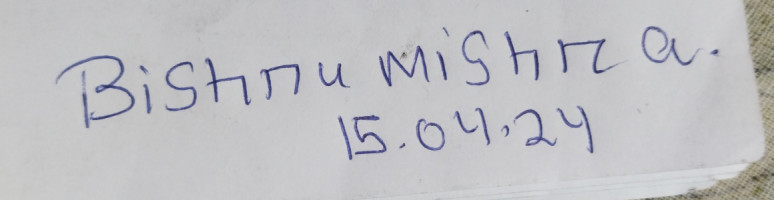 Bishnu Mishra.
15.04.24